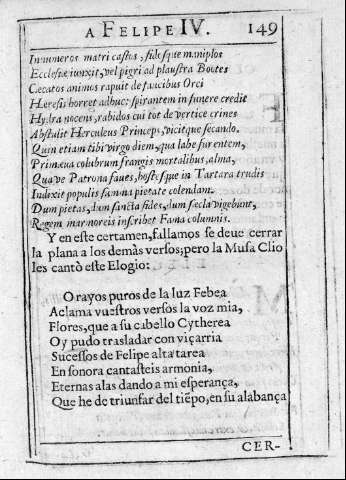 A FELIPE IV. 149
Innumeros matri castos, fidesque maniplos
Ecclesiæ iunxit, vel pigri ad plaustra Bootes
Cæcatos animos rapuit de faucibus Orci
Heresis horret adhuc: spirantem in funere credit
Hydra nocens, rabidos cui tot de vertice crines
Abstulit Herculeus Princeps, vicitque secando.
Quin etiam tibi virgo diem, qua labe furentem,
Primæus colubrum frangis mortalibus, alma,
Quave Patrona faves, hostesque in Tartara trudis
Indixit populis sæmna pietate colendam.
Dum pietas, dum sancta fides, dum sæcla vigebunt,
Regem marmoreis inscribet Fama columnis.
Y en este certamen, fallamos se deve cerrar
la plana a los demàs versos; pero la Musa Clio
les cantò este Elogio:
O rayos puros de la luz Febea
Aclama vuestros versos la voz mia,
Flores, que a su cabello Cytherea
Oy pudo trasladar con viçarria
Sucessos de Felipe alta tarea
En sonora cantasteis armonia,
Eternas alas dando a mi esperança,
Que he de triunfar del tiẽpo, en su alabança
CER-